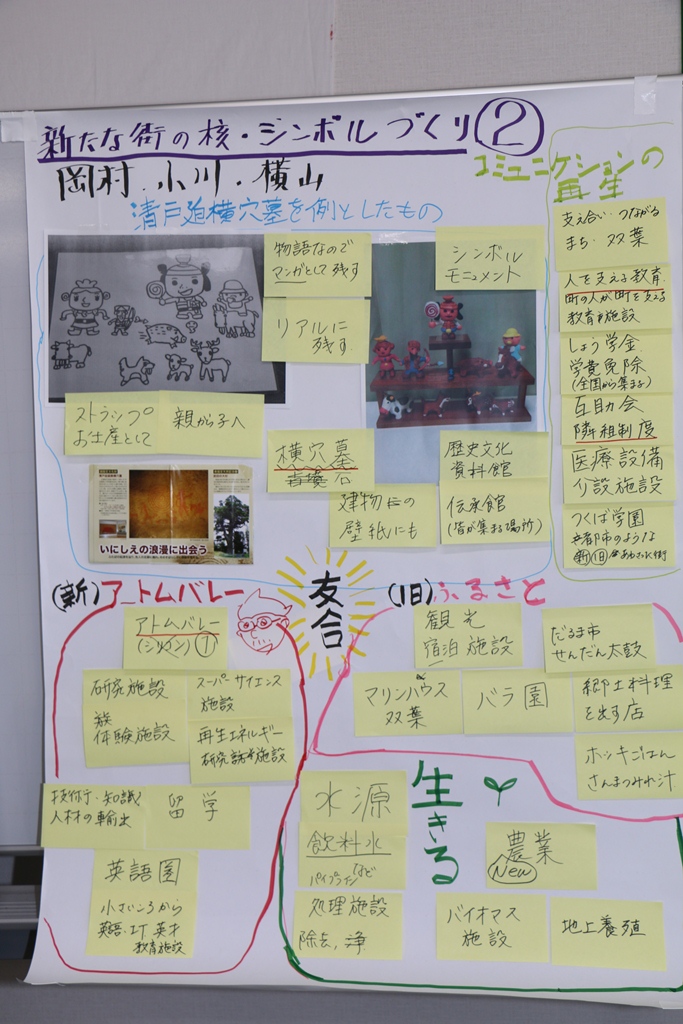 新たな街の核・シンボルづくり②
岡村・小川・横山
コミュニケションの
再生
清戸迫横穴墓を例としたもの
物語なので
マンガとして残す
リアルに
残す
シンボル
モニュメント
支え合い・つながる
まち・双葉
人を支える教育
町の人が町を支える
教育施設
しょう学金
学費免除
(全国から集まる)
互助会
隣組制度
医療設備
介設施設
つくば学園
ストラップ
お土産として
親から子へ
横穴墓
建物にの
壁紙にも
歴史文化
資料館
伝承館
(皆が集まる場所)
いにしえの浪漫に出会う
友合
(新)アトムバレー
アトムバレー
(シリコン)①
研究施設
体験施設
スーパーサイエンス
施設
再生エネルギー
研究施設
技術・知識
人材の輸出
留学
英語圏
小さいころから
英語・IT英才
教育施設
(旧)ふるさと
観光
宿泊施設
だるま市
せんだん太鼓
マリンハウス
双葉
バラ園
郷土料理
を出す店
ホッキごはん
さんまつみれ汁
生きる
水源
飲料水
パイプラインなど
処理施設
除去,浄
農業
New
バイオマス
施設
地上養殖